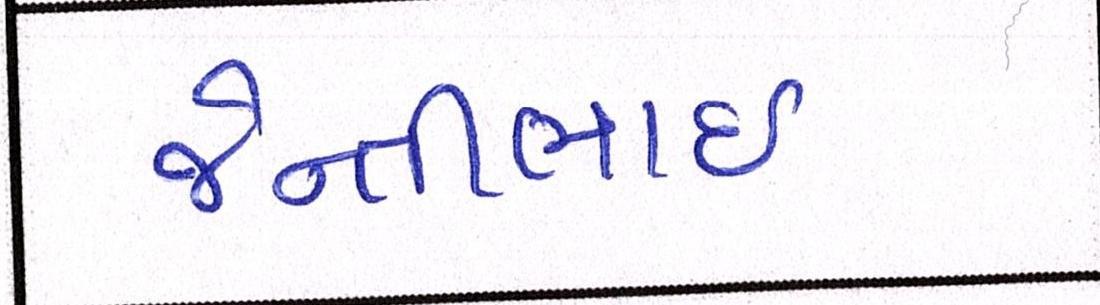 જેન્તીભાઇ